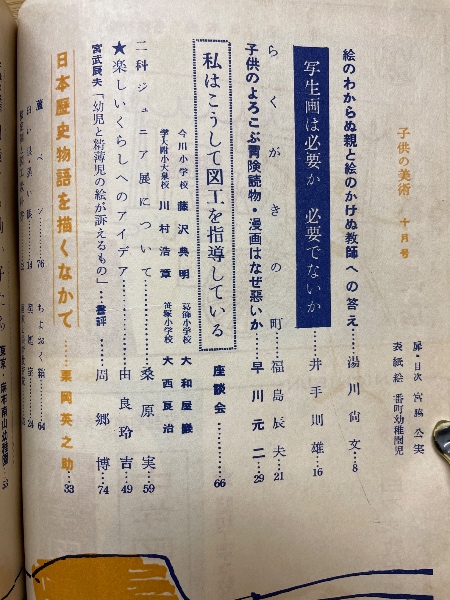 子供の美術 十月号
扉・目次 宮脇公実
表紙絵 番町幼稚園児
絵のわからぬ親と絵のかけぬ教師への答え……湯川尚文…8
写生画は必要か 必要でないか……井手則雄…16
らくがきの町……福島辰夫…21
子供のよろこぶ冒険読物・漫画はなぜ悪いか……早川元二…29
私はこうして図工を指導している……座談会……66
今川小学校 藤沢典明
学大附小大泉校 川村浩章
葛飾小学校 大和屋巌
笹塚小学校 大西良治
二科ジュニア展について……桑原実…59
★楽しいくらしへのアイデア……由良玲吉…49
宮武辰夫「幼児と精薄児の絵が訴えるもの」…書評……周郷博…74
日本歴史物語を描くなかで……栗岡英之助…33
ペン……76
ちよおく箱……64
東京・麻布南山幼稚園…53